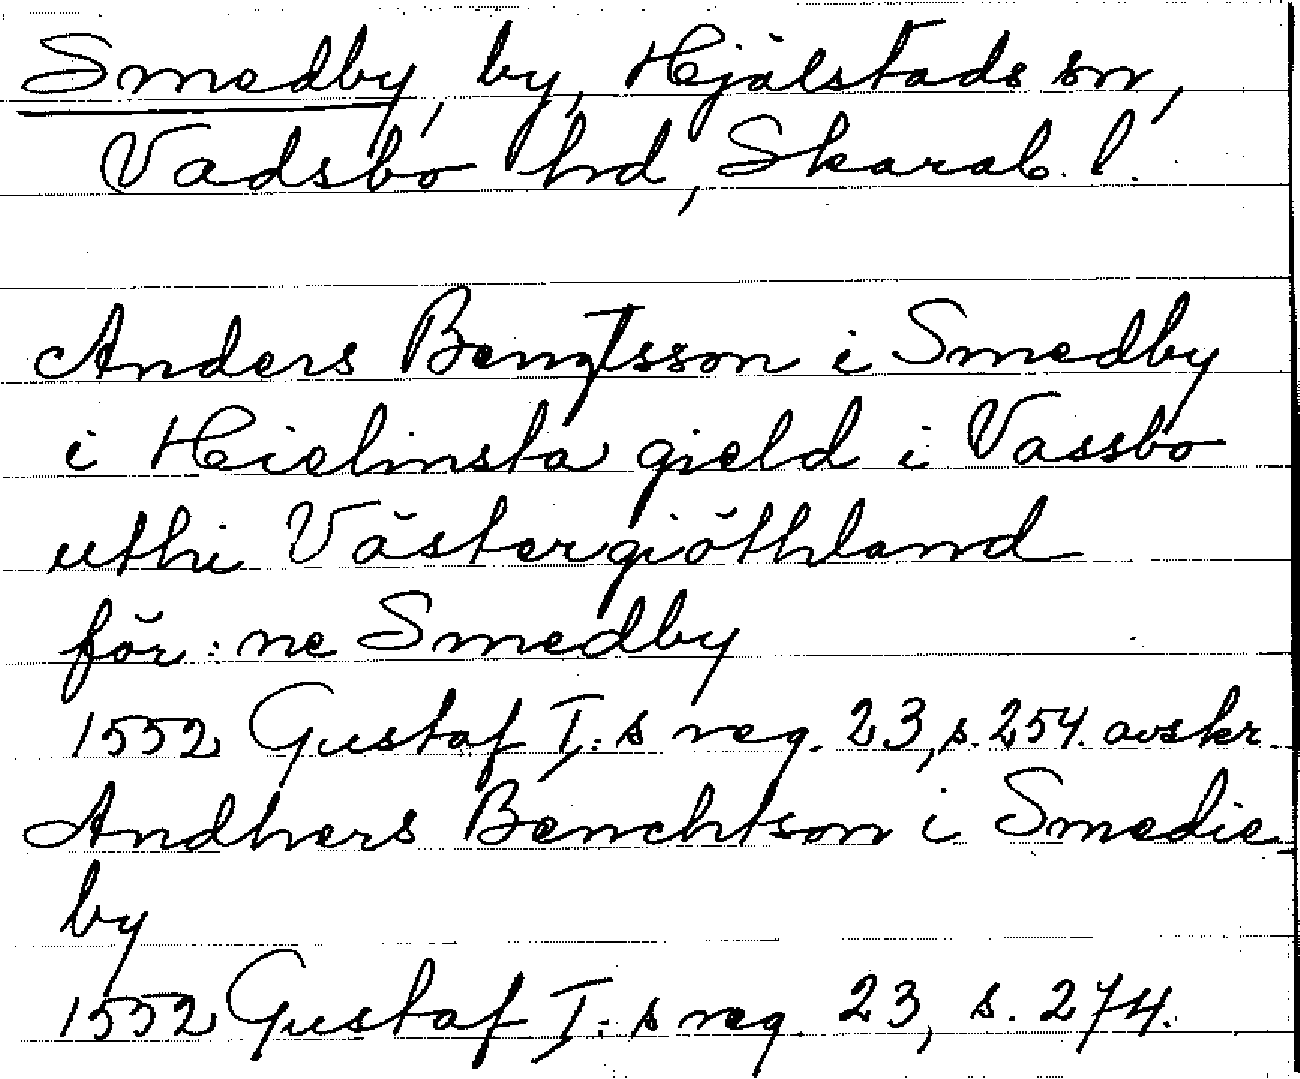 Smedby, by, Hjälstads sn,
Vadsbo hd, Skarab. l.
Anders Bengtsson i Smedby
i Hielmsta gield i Vassbo
uthi Västergiöthland
för:ne Smedby
1552 Gustaf I:s reg. 23, s. 254. avskr.
Andhers Benchtson i Smedie-
by
1552 Gustaf I:s reg. 23, s. 274.